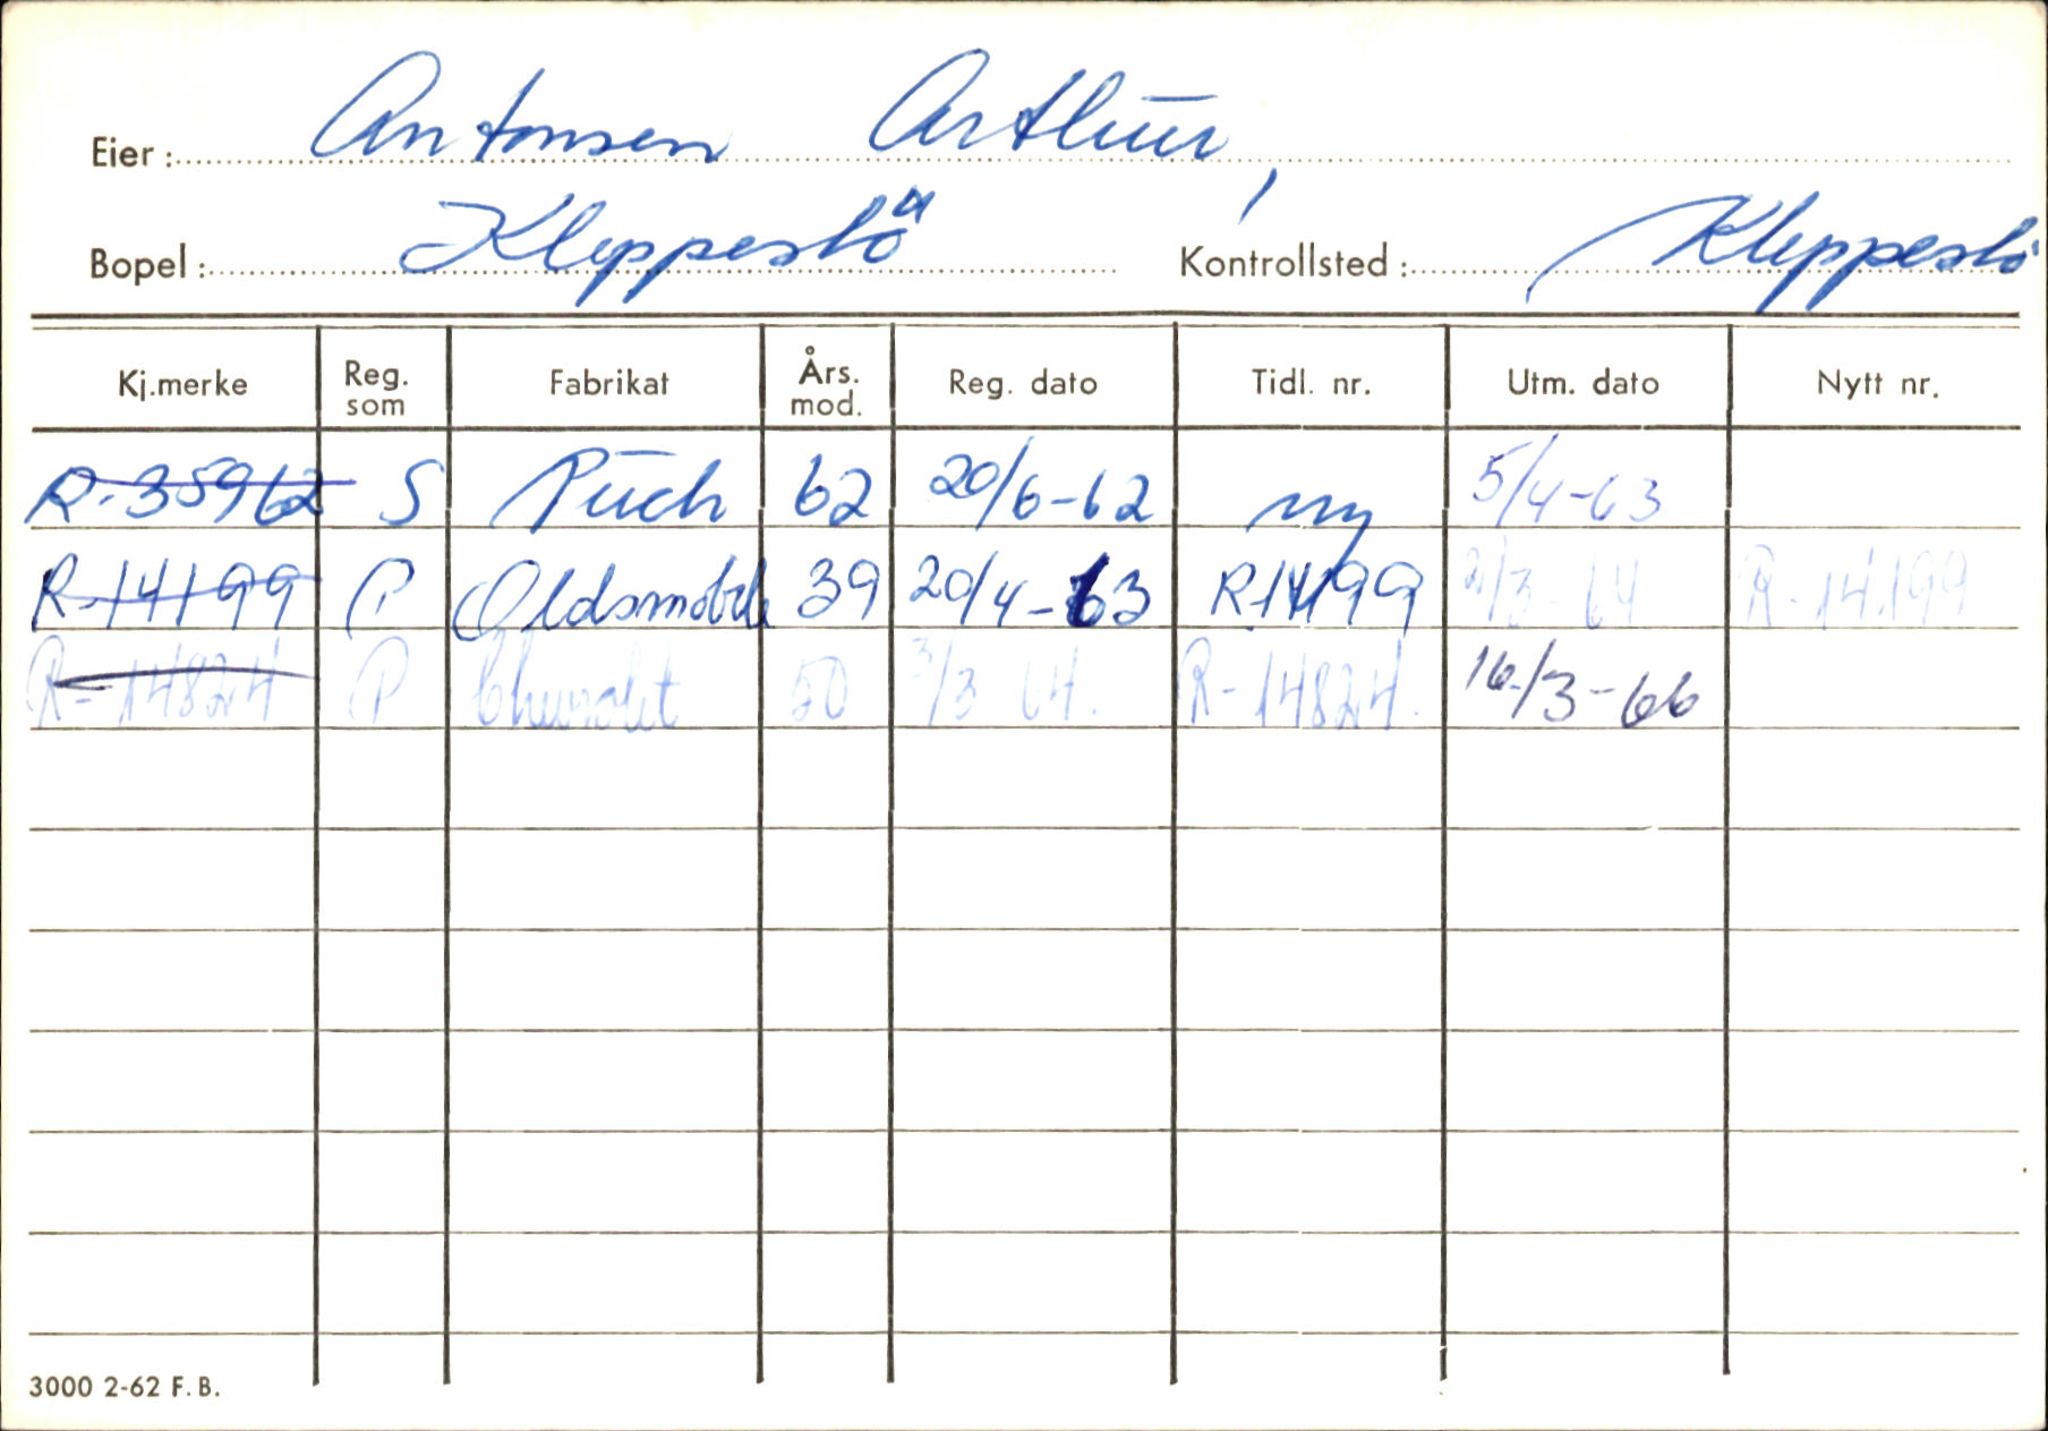 Eier: Antonsen Arthur,
Bopel: Kleppestö Kontrollsted: Kleppestö
Kj.merke Reg. som Fabrikat Års. mod. Reg. dato Tidl. nr. Utm. dato Nytt nr.
R-35962 S Puch 62 20/6-62 ny 5/4-63
R-14199 P Oldsmobile 39 20/4-63 R-14199 2/3-64 R-14.199
R-14824 P Chevrolet 50 3/3 64. R-14824. 16/3-66
3000 2-62 F.B.